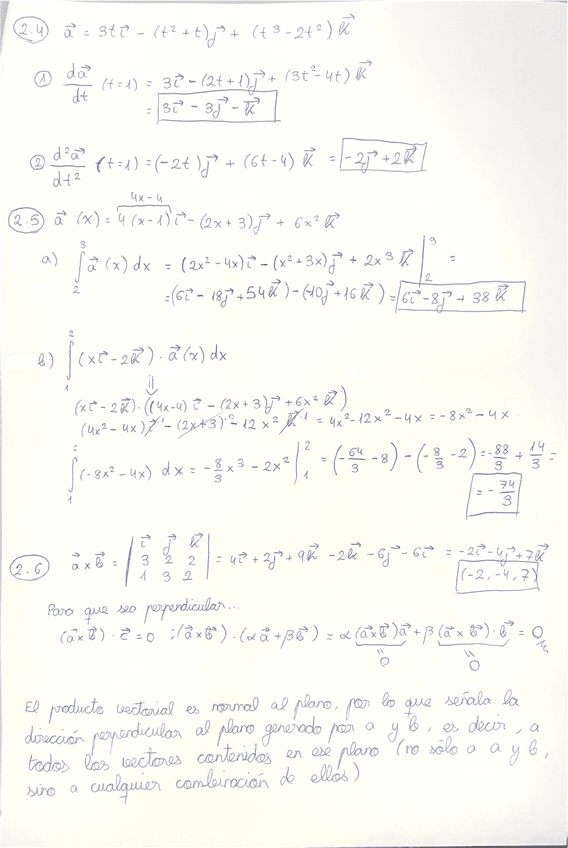 2.4 a⃗ = 3t i⃗ - (t² + t) j⃗ + (t³ - 2t²) k⃗
① da⃗/dt (t=1) = 3i⃗ - (2t+1) j⃗ + (3t² - 4t) k⃗
= 3i⃗ - 3j⃗ - k⃗
② d²a⃗/dt² (t=1) = (-2t) j⃗ + (6t-4) k⃗ = -2j⃗ + 2k⃗
4x-4
2.5 a⃗ (x) = 4(x-1) i⃗ - (2x+3) j⃗ + 6x² k⃗
a) ∫₂³ a⃗ (x) dx = (2x² - 4x) i⃗ - (x² + 3x) j⃗ + 2x³ k⃗ |₂³ =
= (6i⃗ - 18j⃗ + 54k⃗) - (-10j⃗ + 16k⃗) = 6i⃗ - 8j⃗ + 38k⃗
b) ∫₁² (xi⃗ - 2k⃗) · a⃗ (x) dx
⇓
(xi⃗ - 2k⃗) · ((4x-4) i⃗ - (2x+3) j⃗ + 6x² k⃗)
(4x² - 4x) i⃗·¹ - (2x+3)·⁰ - 12x² k⃗·¹ = 4x² - 12x² - 4x = -8x² - 4x
∫₁² (-8x² - 4x) dx = -8/3 x³ - 2x² |₁² = (-64/3 - 8) - (-8/3 - 2) = -88/3 + 14/3 =
= -74/3
2.6 a⃗ x b⃗ = | i⃗ j⃗ k⃗ | = 4i⃗ + 2j⃗ + 9k⃗ - 2k⃗ - 6j⃗ - 6i⃗ = -2i⃗ - 4j⃗ + 7k⃗
3 2 2
1 3 2
(-2, -4, 7)
Para que sea perpendicular...
(a⃗ x b⃗) · c⃗ = 0 ; (a⃗ x b⃗) · (α a⃗ + β b⃗) = α (a⃗ x b⃗) a⃗ + β (a⃗ x b⃗) · b⃗ = 0
0 0
El producto vectorial es normal al plano, por lo que señala la
dirección perpendicular al plano generado por a y b, es decir, a
todos los vectores contenidos en ese plano (no sólo a a y b,
sino a cualquier combinación de ellos)